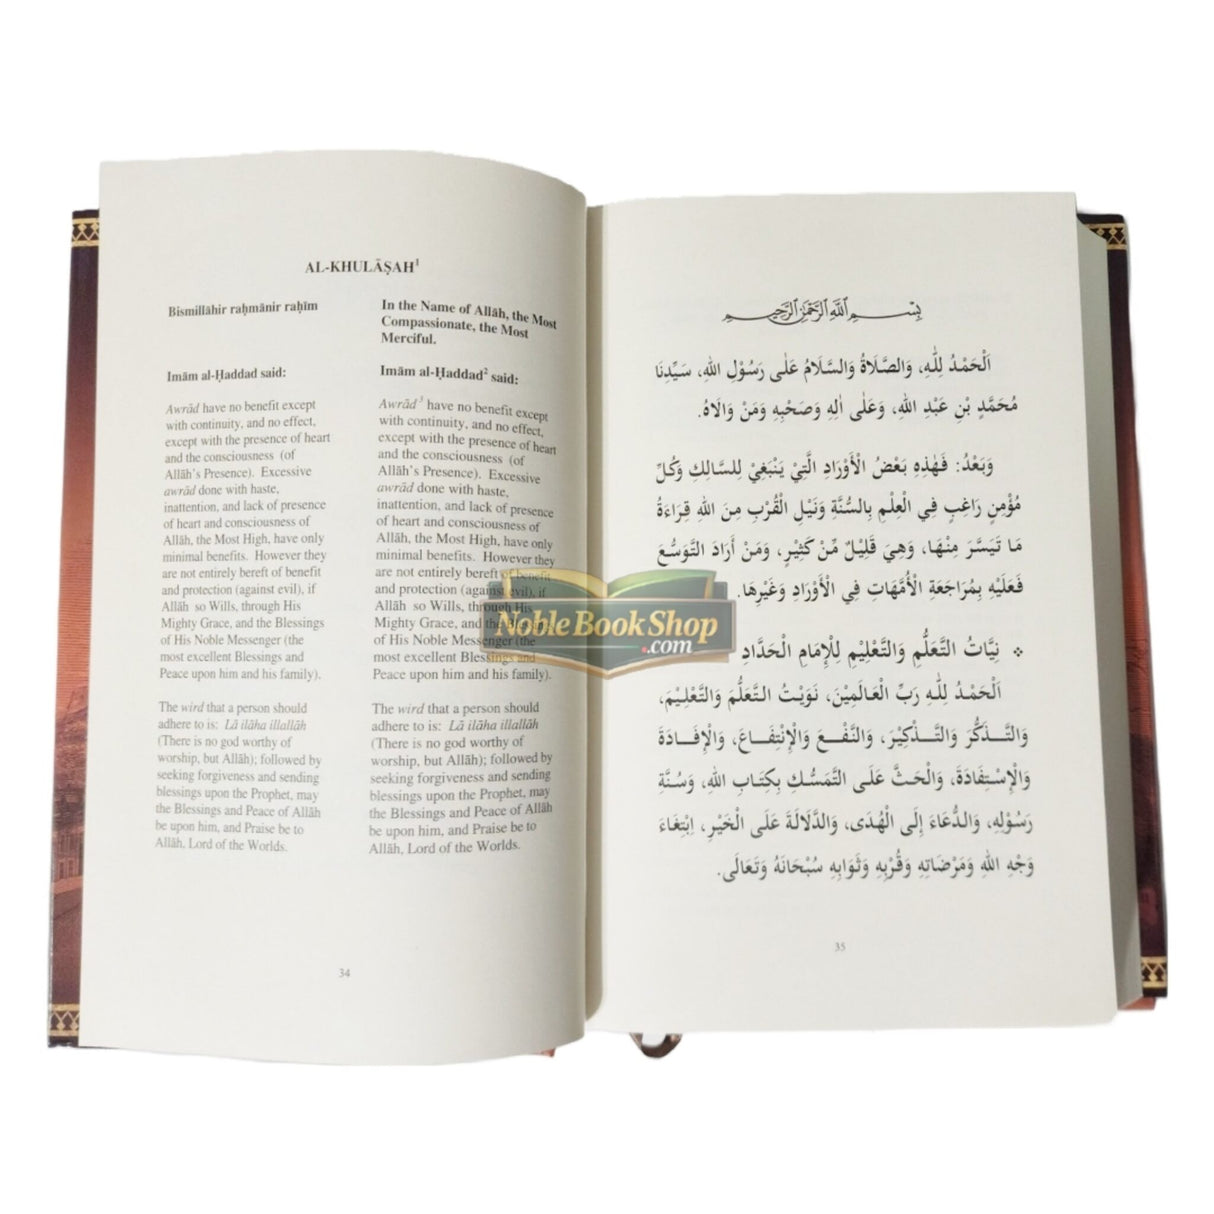 AL-KHULĀṢAH¹
Bismillāhir raḥmānir raḥīm
Imām al-Ḥaddad said:
Awrād have no benefit except
with continuity, and no effect,
except with the presence of heart
and the consciousness (of
Allāh's Presence). Excessive
awrād done with haste,
inattention, and lack of presence
of heart and consciousness of
Allāh, the Most High, have only
minimal benefits. However they
are not entirely bereft of benefit
and protection (against evil), if
Allāh so Wills, through His
Mighty Grace, and the Blessings
of His Noble Messenger (the
most excellent Blessings and
Peace upon him and his family).
The wird that a person should
adhere to is: Lā ilāha illallāh
(There is no god worthy of
worship, but Allāh); followed by
seeking forgiveness and sending
blessings upon the Prophet, may
the Blessings and Peace of Allāh
be upon him, and Praise be to
Allāh, Lord of the Worlds.
In the Name of Allāh, the Most
Compassionate, the Most
Merciful.
Imām al-Ḥaddad² said:
Awrād³ have no benefit except
with continuity, and no effect,
except with the presence of heart
and the consciousness (of
Allāh's Presence). Excessive
awrād done with haste,
inattention, and lack of presence
of heart and consciousness of
Allāh, the Most High, have only
minimal benefits. However they
are not entirely bereft of benefit
and protection (against evil), if
Allāh so Wills, through His
Mighty Grace, and the Blessings
of His Noble Messenger (the
most excellent Blessings and
Peace upon him and his family).
The wird that a person should
adhere to is: Lā ilāha illallāh
(There is no god worthy of
worship, but Allāh); followed by
seeking forgiveness and sending
blessings upon the Prophet, may
the Blessings and Peace of Allāh
be upon him, and Praise be to
Allāh, Lord of the Worlds.
34
بِسْمِ اللَّهِ الرَّحْمَنِ الرَّحِيمِ
اَلْحَمْدُ لِلّٰهِ، وَالصَّلَاةُ وَالسَّلَامُ عَلٰى رَسُوْلِ اللهِ، سَيِّدِنَا
مُحَمَّدٍ بْنِ عَبْدِ اللهِ، وَعَلٰى اٰلِهِ وَصَحْبِهِ وَمَنْ وَالَاهُ.
وَبَعْدُ: فَهٰذِهِ بَعْضُ الْأَوْرَادِ الَّتِيْ يَنْبَغِيْ لِلسَّالِكِ وَكُلِّ
مُؤْمِنٍ رَاغِبٍ فِي الْعِلْمِ بِالسُّنَّةِ وَنَيْلِ الْقُرْبِ مِنَ اللهِ قِرَاءَةُ
مَا تَيَسَّرَ مِنْهَا، وَهِيَ قَلِيْلٌ مِّنْ كَثِيْرٍ، وَمَنْ أَرَادَ التَّوَسُّعَ
فَعَلَيْهِ بِمُرَاجَعَةِ الْأُمَّهَاتِ فِي الْأَوْرَادِ وَغَيْرِهَا.
* نِيَّاتُ التَّعَلُّمِ وَالتَّعْلِيْمِ لِلْإِمَامِ الْحَدَّادِ
اَلْحَمْدُ لِلّٰهِ رَبِّ الْعَالَمِيْنَ، نَوَيْتُ التَّعَلُّمَ وَالتَّعْلِيْمَ،
وَالتَّذَكُّرَ وَالتَّذْكِيْرَ، وَالنَّفْعَ وَالْإِنْتِفَاعَ، وَالْإِفَادَةَ
وَالْإِسْتِفَادَةَ، وَالْحَثَّ عَلَى التَّمَسُّكِ بِكِتَابِ اللهِ، وَسُنَّةِ
رَسُوْلِهِ، وَالدُّعَاءَ إِلَى الْهُدَى، وَالدَّلَالَةَ عَلَى الْخَيْرِ، اِبْتِغَاءَ
وَجْهِ اللهِ وَمَرْضَاتِهِ وَقُرْبِهِ وَثَوَابِهِ سُبْحَانَهُ وَتَعَالَى.
35
Noble Book Shop
.com